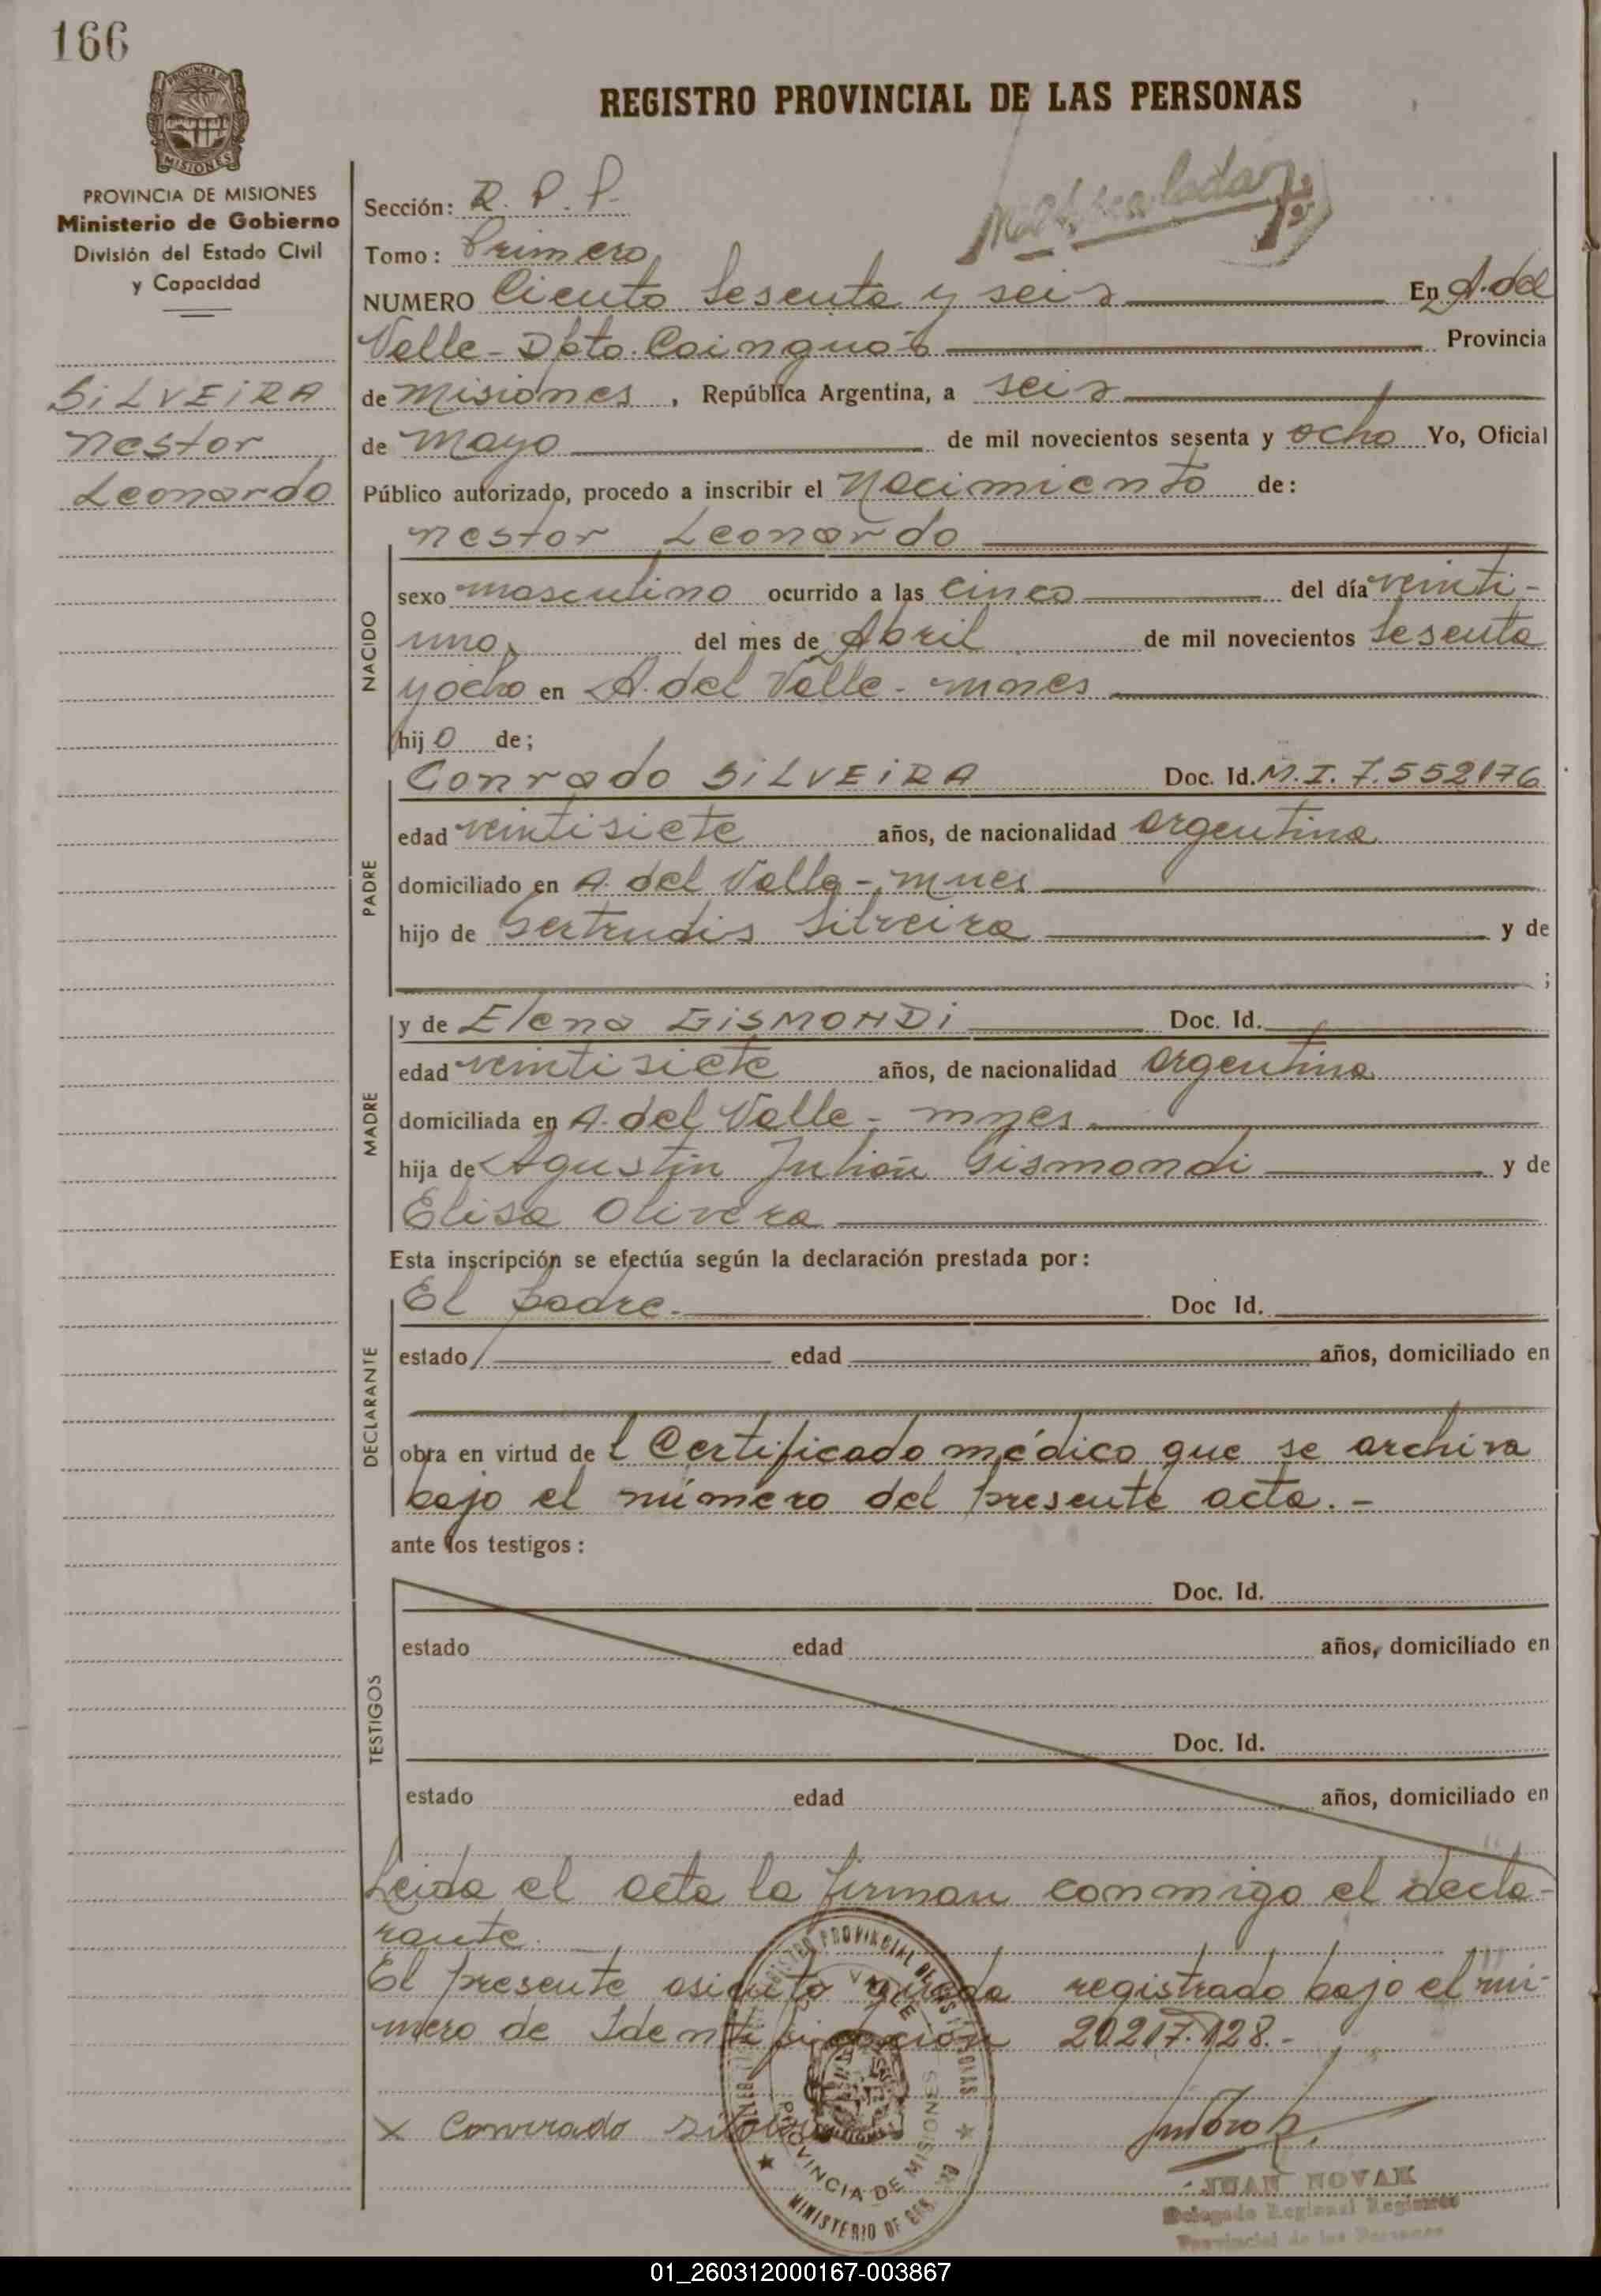 166
REGISTRO PROVINCIAL DE LAS PERSONAS
PROVINCIA DE MISIONES
MISIONES
PROVINCIA DE MISIONES
Ministerio de Gobierno
División del Estado Civil
y Capacidad
SILVEIRA
Nestor
Leonardo
Sección: R. P. P.
Tomo: Primero
NUMERO Ciento Sesenta y seis En A. del
Valle - Dpto. Cainguás Provincia
de Misiones, República Argentina, a seis
de Mayo de mil novecientos sesenta y ocho Yo, Oficial
Público autorizado, procedo a inscribir el Nacimiento de:
NACIDO
Nestor Leonardo
sexo masculino ocurrido a las cinco del día veinti-
uno del mes de Abril de mil novecientos sesenta
y ocho en A. del Valle - mnes
hijo de;
PADRE
Conrado SILVEIRA Doc. Id. M. I. 7.552176
edad veintisiete años, de nacionalidad argentina
domiciliado en A. del Valle - mnes
hijo de Gertrudis Silveira y de
;
MADRE
y de Elena GISMONDI Doc. Id.
edad veintisiete años, de nacionalidad argentina
domiciliada en A. del Valle - mnes
hija de Agustin Julián Gismondi y de
Elisa Olivera
Esta inscripción se efectúa según la declaración prestada por:
DECLARANTE
El padre. Doc Id.
estado edad años, domiciliado en
obra en virtud del Certificado médico que se archiva
bajo el número del presente acta. -
ante los testigos:
TESTIGOS
Doc. Id.
estado edad años, domiciliado en
Doc. Id.
estado edad años, domiciliado en
Leida el acta la firman conmigo el decla-
rante.
El presente asiento queda registrado bajo el nú-
mero de Identificación 20.217.128.-
X Conrado
JUAN NOVAK
Delegado Regional Registro
Provincial de las Personas
REGISTRO PROVINCIAL DE LAS PERSONAS
VALLE
PROVINCIA DE MISIONES
MINISTERIO DE GOB.
01_260312000167-003867